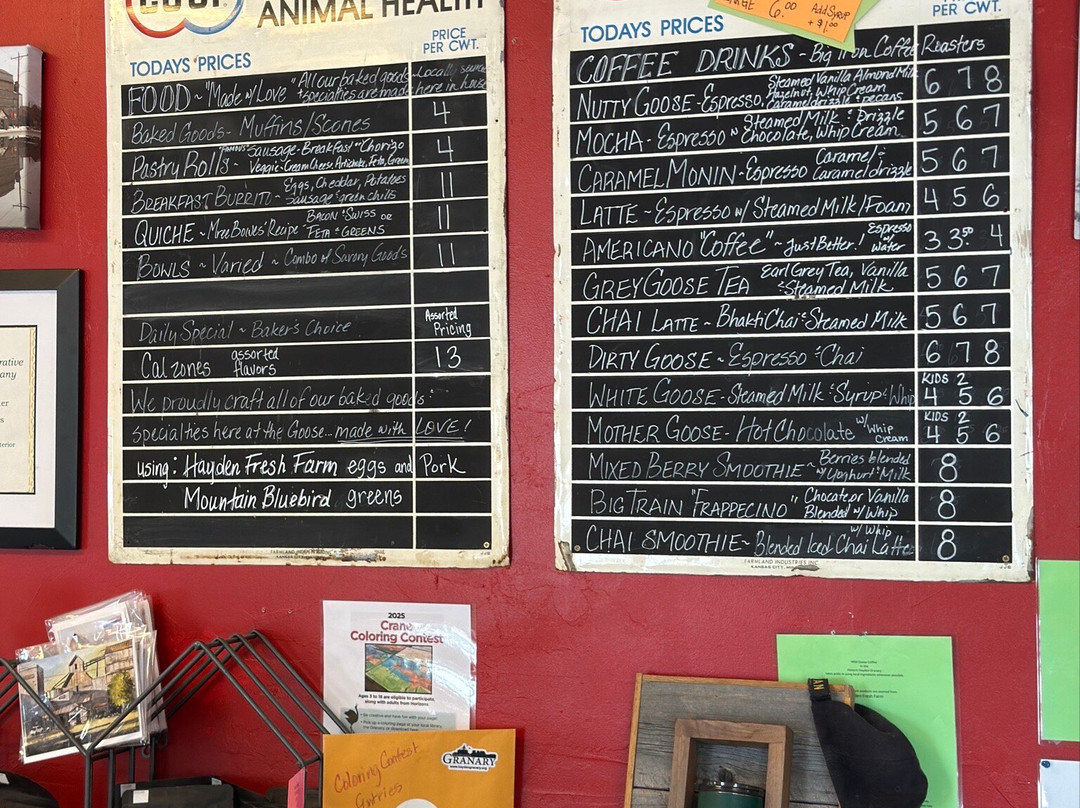 CO-OP
ANIMAL HEALTH
TODAYS PRICES
PRICE
PER CWT.
FOOD ~ "Made w/ Love" "All our baked goods
& specialties are made here in house
Baked Goods - Muffins/Scones 4
Pastry Rolls ~ "Famous" Sausage - Breakfast ~ Chorizo
Veggie - Cream Cheese, Artichoke, Feta, Green 4
BREAKFAST BURRITO ~ Eggs, Cheddar, Potatoes
Sausage & green chilis 11
QUICHE ~ Mree Bowes' Recipe BACON & SWISS OR
FETA & GREENS 11
BOWLS ~ Varied ~ Combo of Savory Goods 11
Daily Special ~ Baker's Choice Assorted
Pricing
Calzones assorted
flavors 13
We proudly craft all of our baked goods &
specialties here at the Goose... made with LOVE!
using: Hayden Fresh Farm eggs and Pork
Mountain Bluebird greens
FARMLAND INDUSTRIES INC
KANSAS CITY,
6.00 Add Syrup
+ $1.00
TODAYS PRICES
PER CWT.
COFFEE DRINKS - Big Iron Coffee Roasters
NUTTY GOOSE - Espresso, Steamed Vanilla Almond Milk
Hazelnut, Whip Cream
Caramel drizzle & pecans 6 7 8
MOCHA - Espresso ~ Steamed Milk & Drizzle
Chocolate, Whip Cream 5 6 7
CARAMEL MONIN - Espresso Caramel &
Caramel drizzle 5 6 7
LATTE ~ Espresso w/ Steamed Milk/Foam 4 5 6
AMERICANO "Coffee" ~ Just Better! Espresso
w/
Water 3 3.50 4
GREY GOOSE TEA Earl Grey Tea, Vanilla
& Steamed Milk 5 6 7
CHAI LATTE ~ Bhakti Chai & Steamed Milk 5 6 7
DIRTY GOOSE ~ Espresso & Chai 6 7 8
WHITE GOOSE - Steamed Milk & Syrup & Whip KIDS 2
4 5 6
MOTHER GOOSE - Hot Chocolate w/ Whip
Cream KIDS 2
4 5 6
MIXED BERRY SMOOTHIE ~ Berries blended
w/ Yoghurt & Milk 8
BIG TRAIN "FRAPPECINO" Chocate or Vanilla
Blended w/ Whip 8
CHAI SMOOTHIE ~ w/ Whip
Blended Iced Chai Latte 8
FARMLAND INDUSTRIES INC
KANSAS CITY,
2025
Crane
Coloring Contest
Ages 5 to 18 are eligible to participate,
along with adults from Horizons
GRANARY
Coloring Contest
Entries